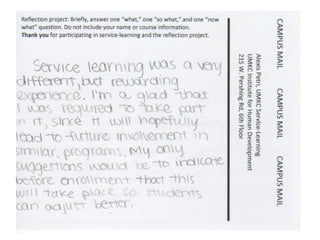 Reflection project: Briefly, answer one "what," one "so what," and one "now
what" question. Do not include your name or course information.
Thank you for participating in service-learning and the reflection project.
Service learning was a very
different, but rewarding
experience. I'm a glad that
I was required to take part
in it, since it will hopefully
lead to future involvement in
similar, programs. My only
suggestions would be to indicate
before enrollment that this
will take place so students
can adjust better.
CAMPUS MAIL CAMPUS MAIL CAMPUS MAIL
Alexis Petri, UMKC Service-Learning
UMKC Institute for Human Development
215 W. Pershing Rd, 6th Floor